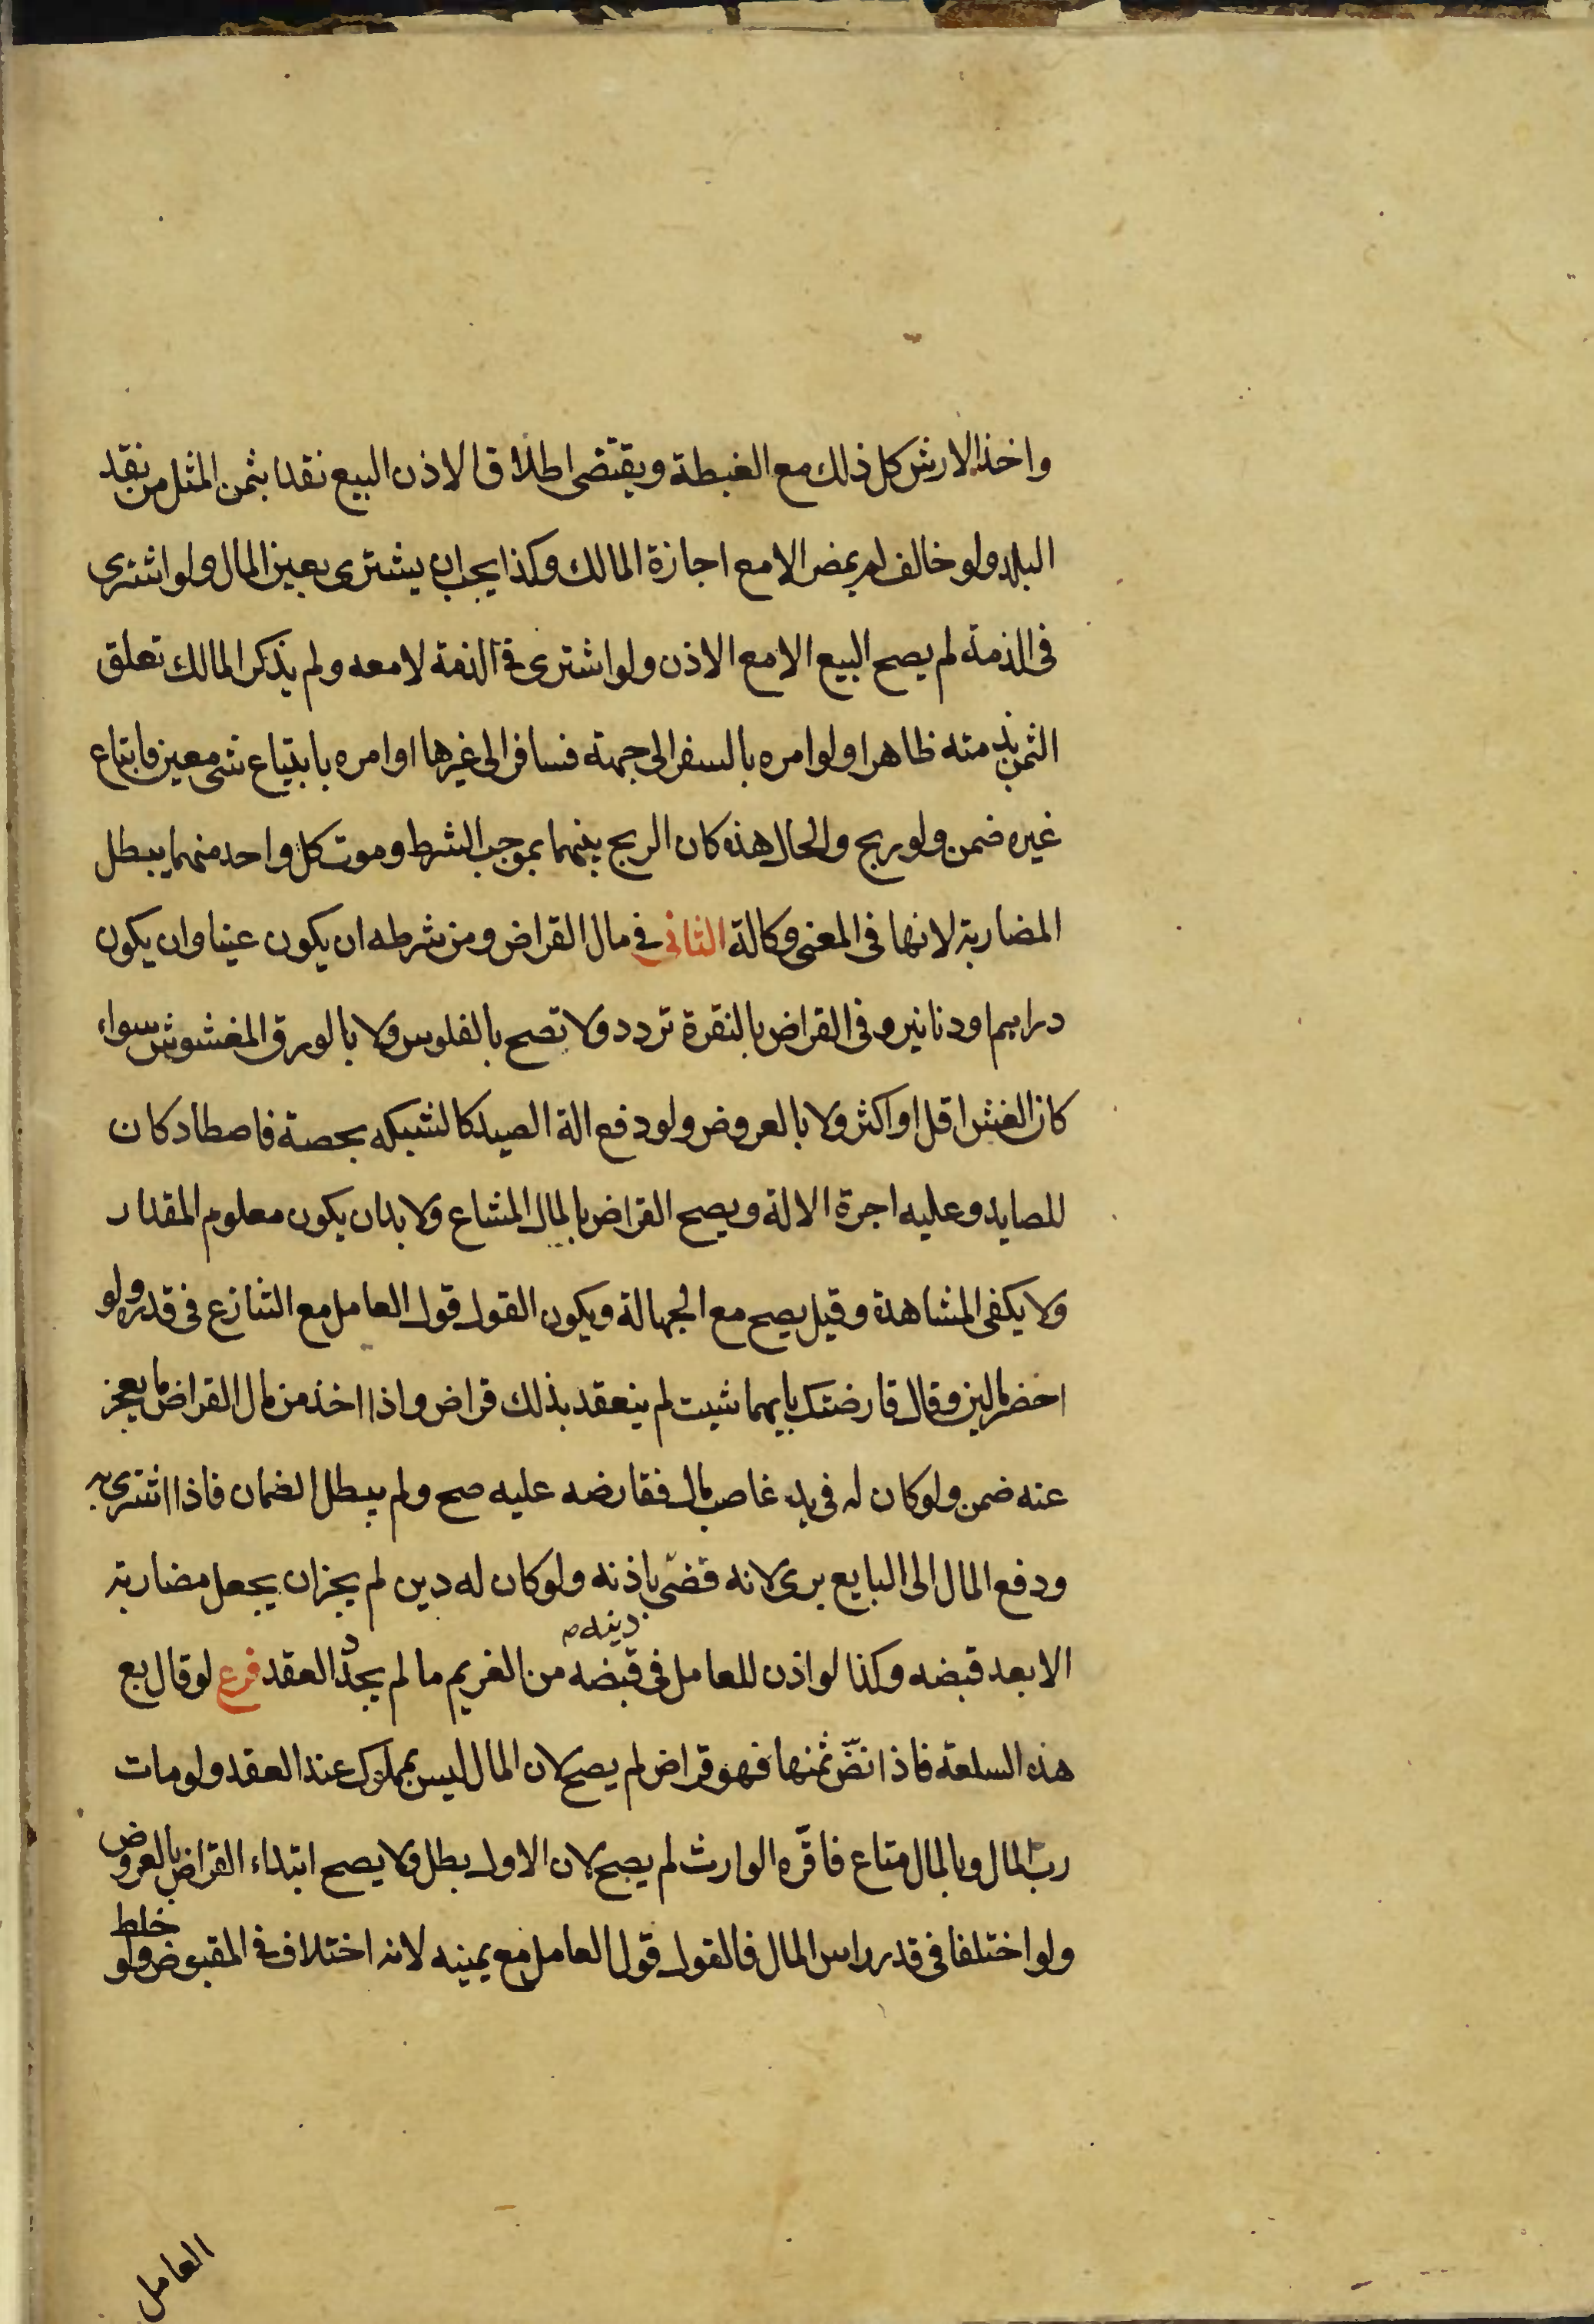 واخذ الارش كل ذلك مع الغبطة ويقتضى اطلاق الاذن البيع نقدا بثمن المثل من نقد
البلد ولو خالف لم يمض الا مع اجازة المالك وكذا يجب ان يشترى بعين المال ولو اشترى
فى الذمة لم يصح البيع الا مع الاذن ولو اشترى فى الذمة لا معه ولم يذكر المالك تعلق
الثمن بذمته ظاهرا ولو امره بالسفر الى جهة فسافر الى غيرها او امره بابتياع شى معين فابتاع
غيره ضمن ولو ربح والحال هذه كان الربح بينهما بموجب الشرط وموت كل واحد منهما يبطل
المضاربة لانها فى المعنى وكالة الثانى فى مال القراض ومن شرطه ان يكون عينا وان يكون
دراهم او دنانير وفى القراض بالنقرة تردد ولا تصح بالفلوس ولا بالورق المغشوش سواء
كان الغش اقل او اكثر ولا بالعروض ولو دفع الة الصيد كالشبكه بحصة فاصطاد كان
للصايد وعليه اجرة الالة ويصح القراض بالمال المشاع ولا بد ان يكون معلوم المقدار
ولا يكفى المشاهدة وقيل يصح مع الجهالة ويكون القول قول العامل مع التنازع فى قدره ولو
احضر مالين وقال قارضتك بايهما شيت لم ينعقد بذلك قراض واذا اخذ من مال القراض ما يعجز
عنه ضمن ولو كان له فى يد غاصب مال فقارضه عليه صح ولم يبطل الضمان فاذا اشترى به
ودفع المال الى البايع برى لانه قضى باذنه ولو كان له دين لم يجز ان يجعل مضاربة
دينه
الا بعد قبضه وكذا لو اذن للعامل فى قبضه من الغريم ما لم يجدد العقد فرع لو قال بع
هذه السلعة فاذا نضّ ثمنها فهو قراض لم يصح لان المال ليس بمملوك عند العقد ولو مات
ربّ المال وبالمال متاع فاقرّه الوارث لم يصح لان الاول بطل ولا يصح ابتداء القراض بالعروض
ولو اختلفا فى قدر راس المال فالقول قول العامل مع يمينه لانه اختلاف فى المقبوض ولو خلط
العامل